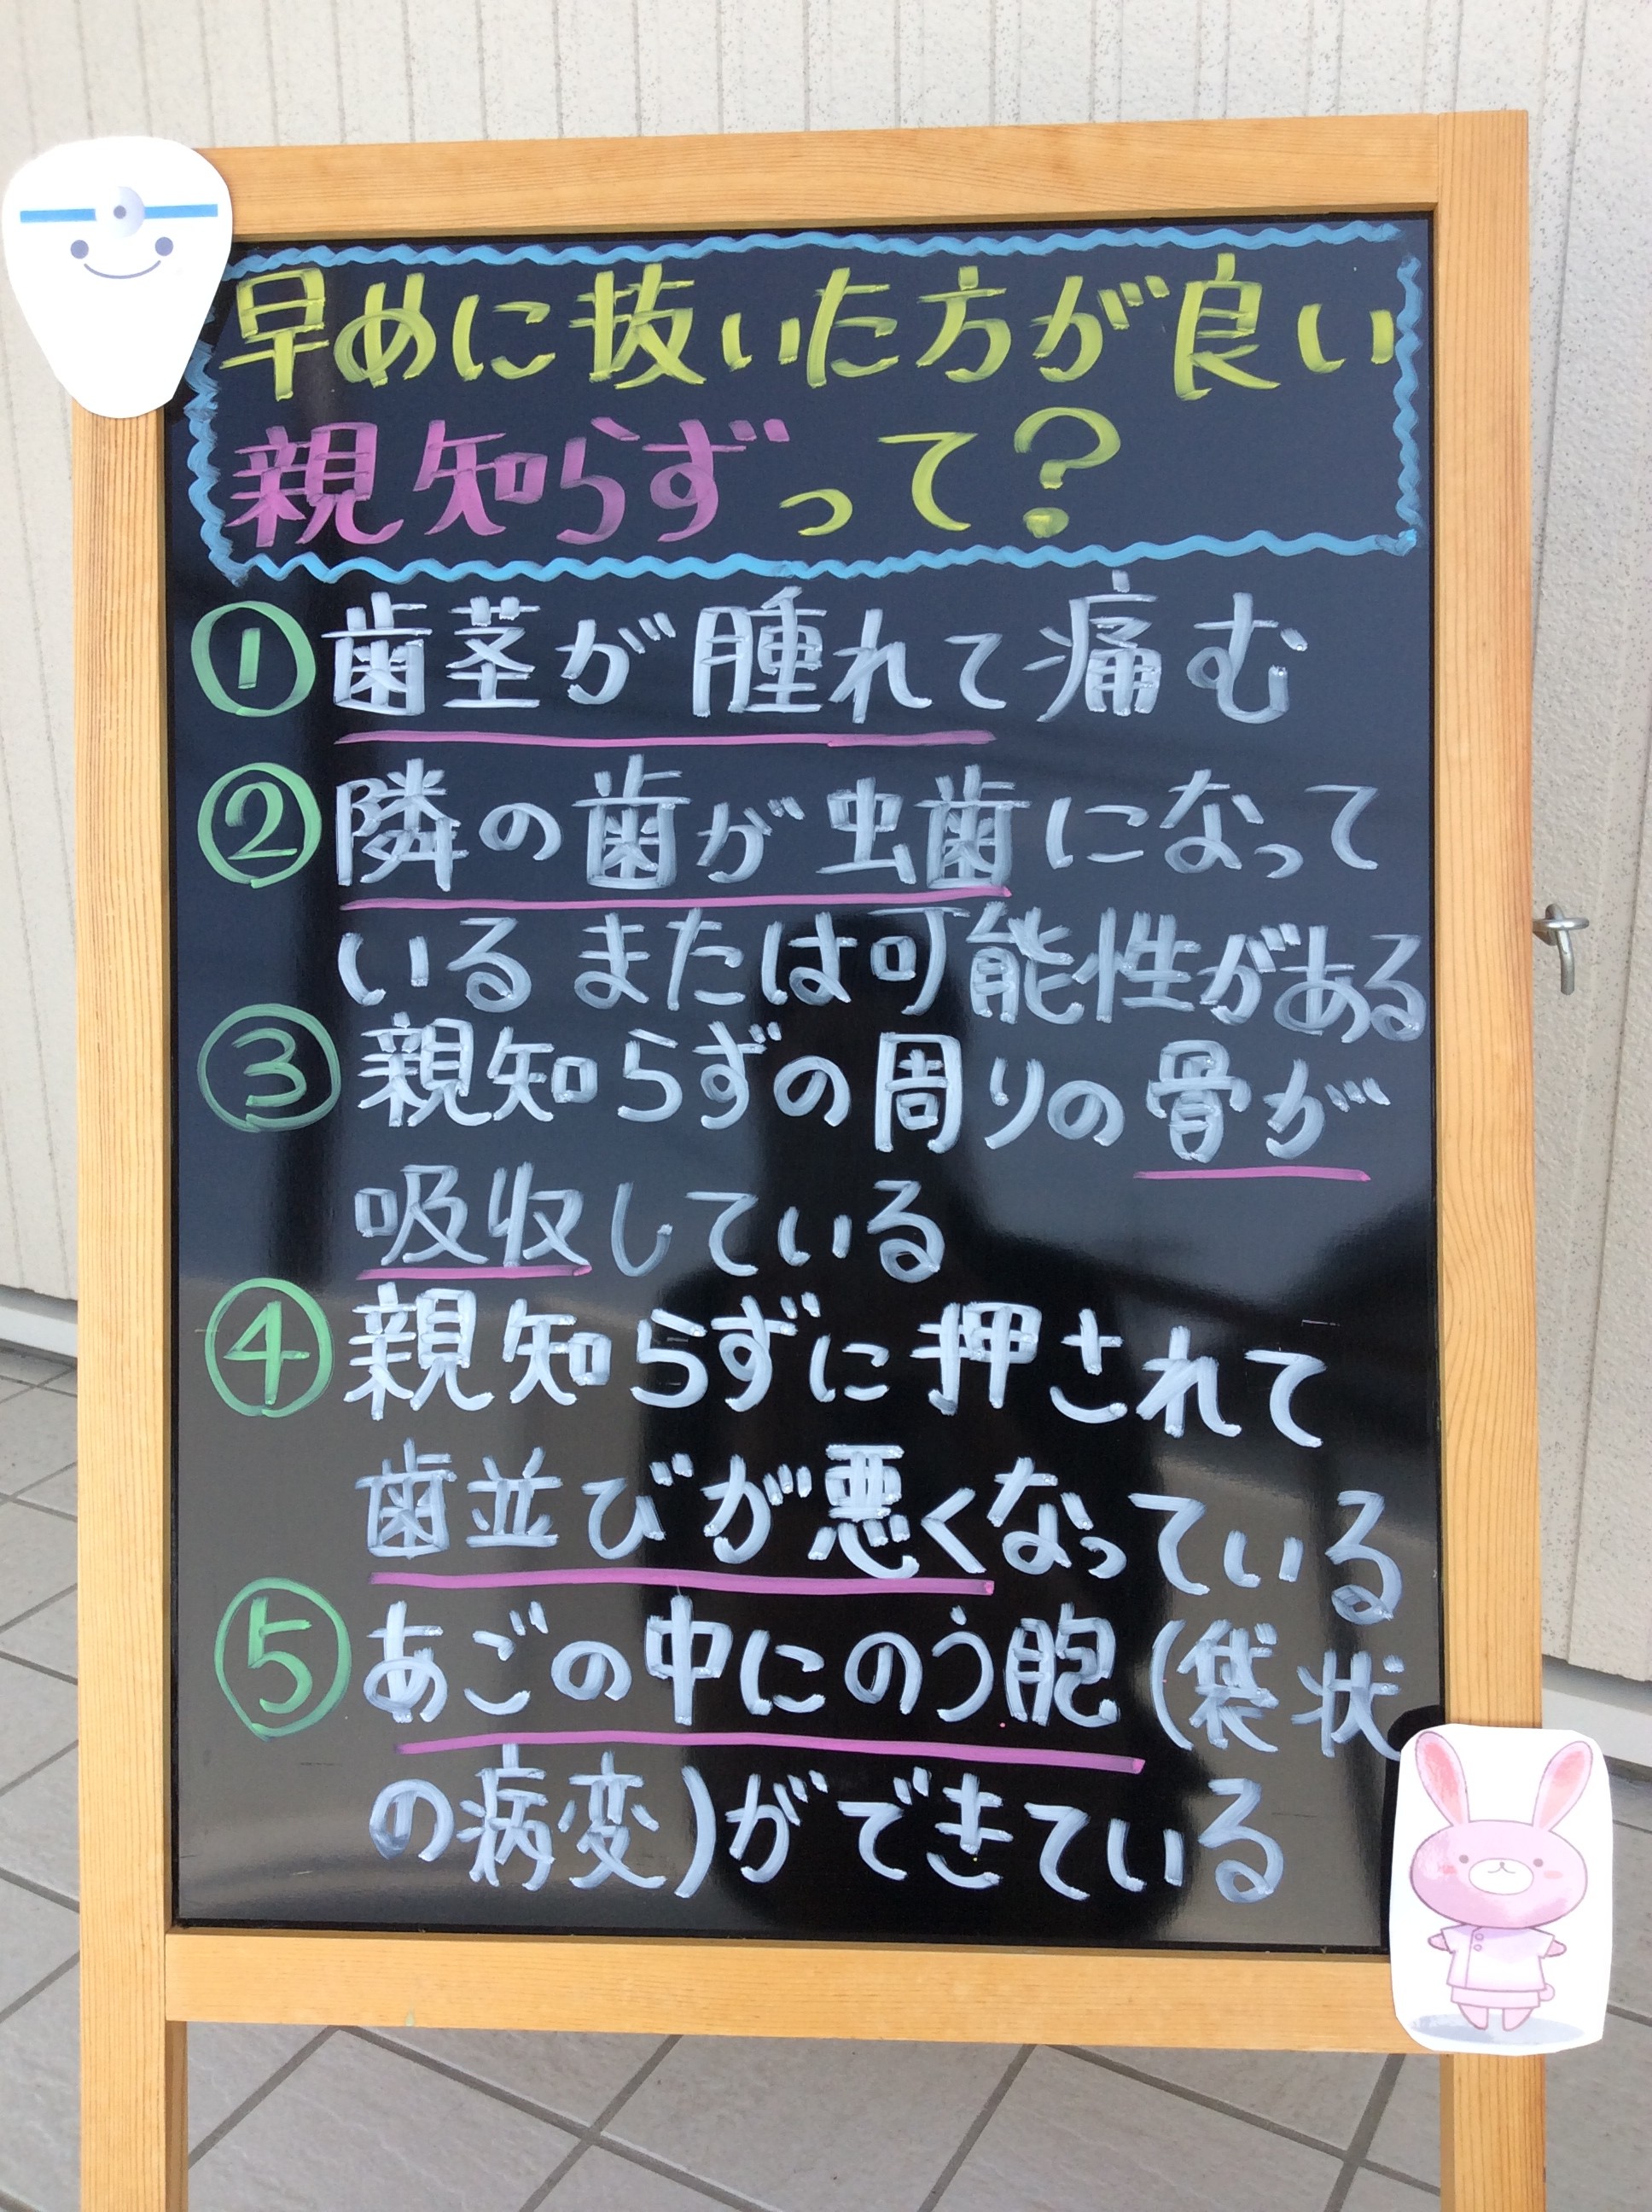 早めに抜いた方が良い
親知らずって?
① 歯茎が腫れて痛む
② 隣の歯が虫歯になって
いるまたは可能性がある
③ 親知らずの周りの骨が
吸収している
④ 親知らずに押されて
歯並びが悪くなっている
⑤ あごの中にのう胞(袋状
の病変)ができている